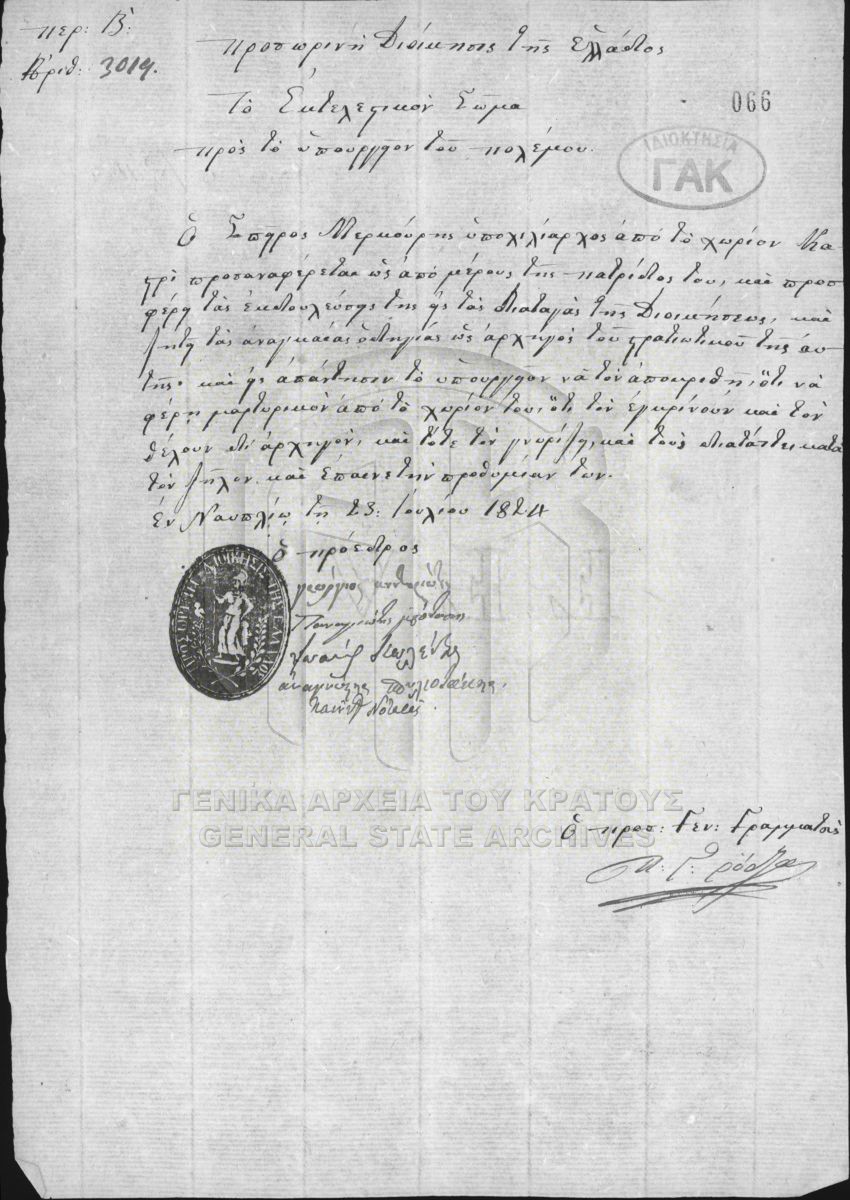 περ: Β:
Ἀριθ: 3019.
Προσωρινὴ Διοίκησις τῆς Ἑλλάδος
066
Τὸ Ἐκτελεστικὸν Σῶμα
πρὸς τὸ ὑπουργεῖον τοῦ πολέμου.
ΙΔΙΟΚΤΗΣΙΑ
ΓΑΚ
Ὁ Σπῦρος Μερκούρης ὑποχιλίαρχος ἀπὸ τὸ χωρίον
προσαναφέρεται ὡς ἀπὸ μέρους τῆς πατρίδος του, καὶ προσ
φέρει τὰς ἐκδουλεύσεις της εἰς τὰς διαταγὰς τῆς Διοικήσεως, καὶ
ζητεῖ τὰς ἀναγκαίας ὁδηγίας ὡς ἀρχηγὸς τοῦ στρατιωτικοῦ της αὐ
τῆς· καὶ εἰς ἀπάντησιν τὸ ὑπουργεῖον νὰ τὸν ἀποκριθῇ, ὅτι νὰ
φέρῃ μαρτυρικὸν ἀπὸ τὸ χωρίον του, ὅτι τὸν ἐγκρίνουν καὶ τὸν
θέλουν δι' ἀρχηγὸν, καὶ τότε τὸν γνωρίζει, καὶ τοὺς διατάττει κατὰ
τὸν ζῆλον καὶ ἐπαινετὴν προθυμίαν των.
Ἐν Ναυπλίῳ τῇ 23: Ἰουλίου 1824
ὁ πρόεδρος
ΠΡΟΣΩΡΙΝΗ ΔΙΟΙΚΗΣΙΣ ΤΗΣ ΕΛΛΑΔΟΣ
γεώργιος κουντουριώτης
Παναγιώτης μπότασης
Ἰωάννης Κωλέττης
ἀναγνώστης σπηλιοτάκης.
ΓΕΝΙΚΑ ΑΡΧΕΙΑ ΤΟΥ ΚΡΑΤΟΥΣ
GENERAL STATE ARCHIVES
ὁ προσ: Γεν: Γραμματεὺς
Π: Γ: Ρόδιος